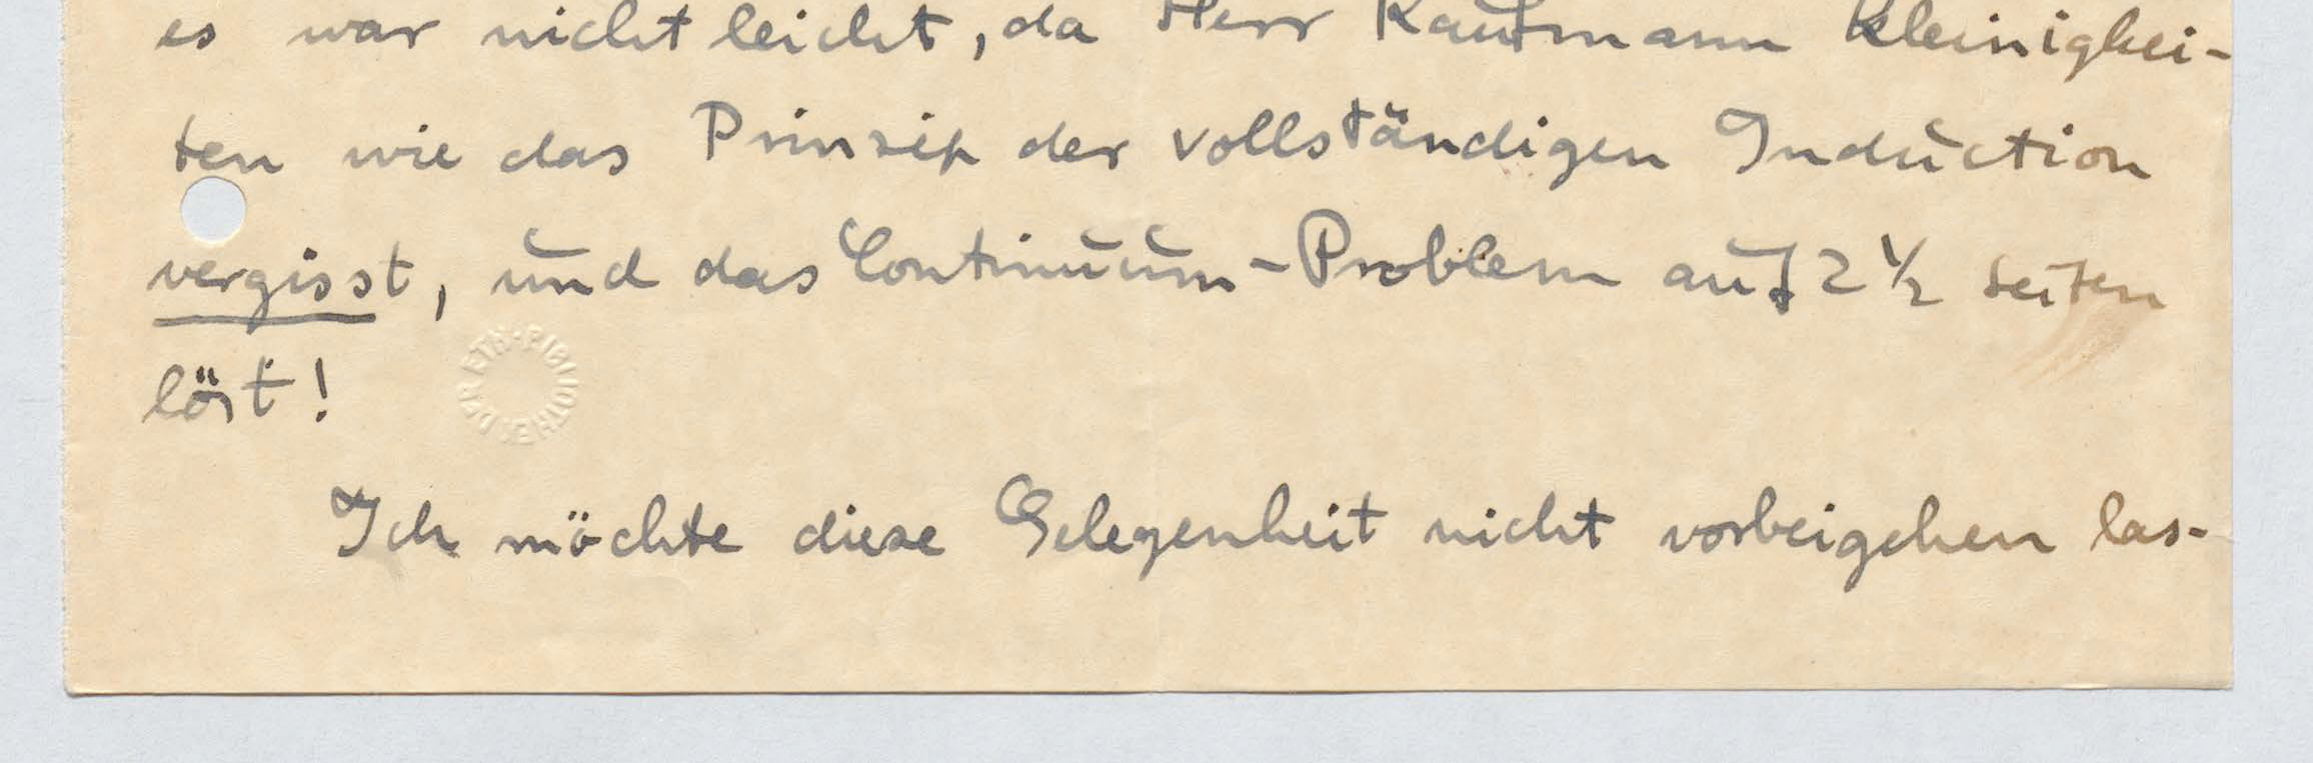 es war nicht leicht, da Herr Kaufmann Kleinigkei-
ten wie das Prinzip der vollständigen Induction
vergisst, und das Continuum-Problem auf 2 1/2 Seiten
löst!
DER ETH-BIBLIOTHEK
Ich möchte diese Gelegenheit nicht vorbeigehen las-